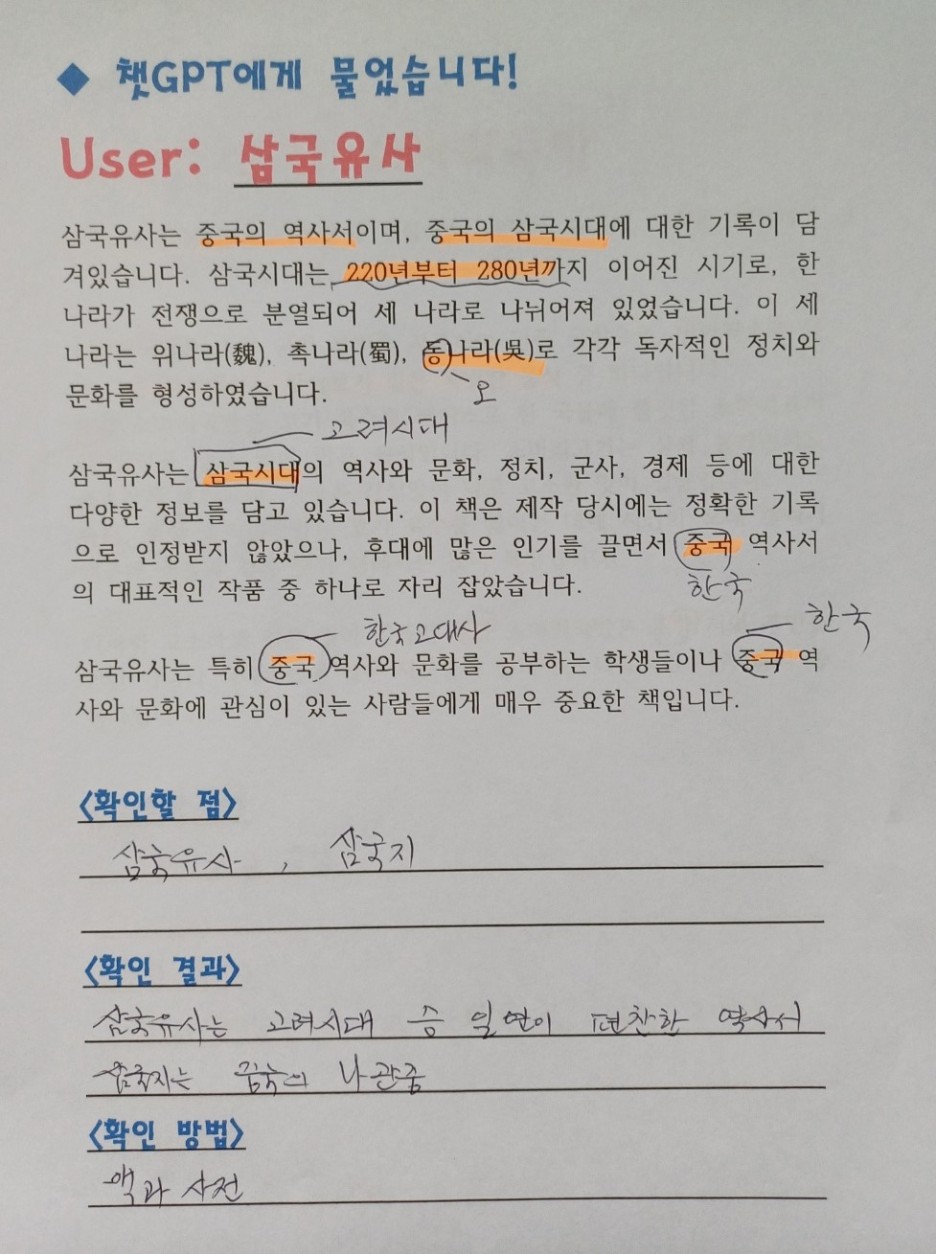 ◆ 챗GPT에게 물었습니다!
User: 삼국유사
삼국유사는 중국의 역사서이며, 중국의 삼국시대에 대한 기록이 담
겨있습니다. 삼국시대는 220년부터 280년까지 이어진 시기로, 한
나라가 전쟁으로 분열되어 세 나라로 나뉘어져 있었습니다. 이 세
나라는 위나라(魏), 촉나라(蜀), 동나라(吳)로 각각 독자적인 정치와
오
문화를 형성하였습니다.
고려시대
삼국유사는 삼국시대의 역사와 문화, 정치, 군사, 경제 등에 대한
다양한 정보를 담고 있습니다. 이 책은 제작 당시에는 정확한 기록
으로 인정받지 않았으나, 후대에 많은 인기를 끌면서 중국 역사서
한국
의 대표적인 작품 중 하나로 자리 잡았습니다.
한국고대사 한국
삼국유사는 특히 중국 역사와 문화를 공부하는 학생들이나 중국 역
사와 문화에 관심이 있는 사람들에게 매우 중요한 책입니다.
<확인할 점>
삼국유사, 삼국지
<확인 결과>
삼국유사는 고려시대 승 일연이 편찬한 역사서
삼국지는 중국의 나관중
<확인 방법>
백과사전